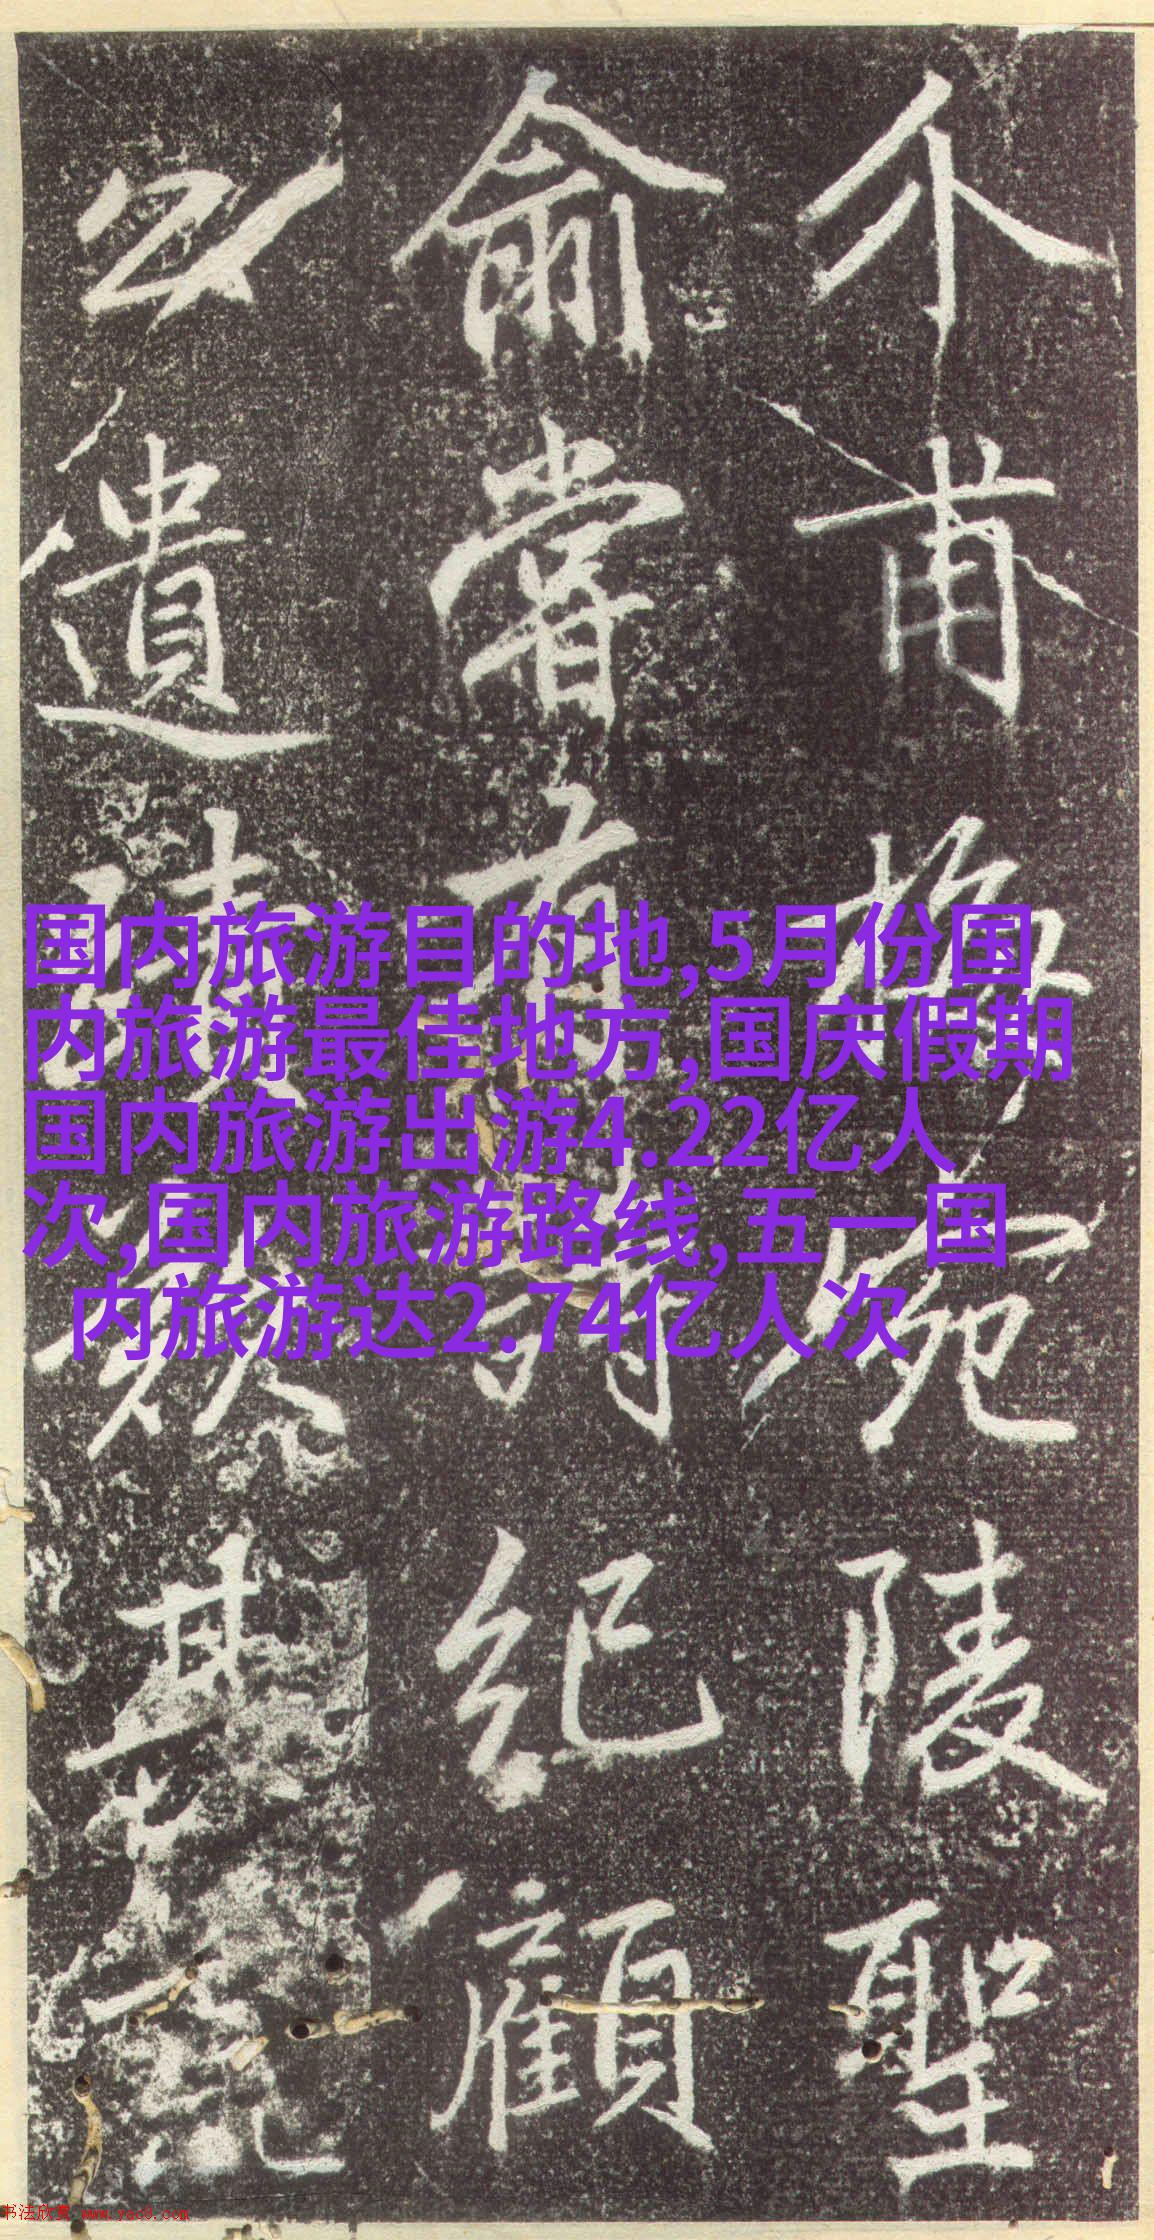 介甫梅宛陵聖
俞嘗有詩紀顧
公遺
国内旅游目的地,5月份国
内旅游最佳地方,国庆假期
国内旅游出游4.22亿人
次,国内旅游路线,五一国
内旅游达2.74亿人次
书法欣赏 www.yac8.com